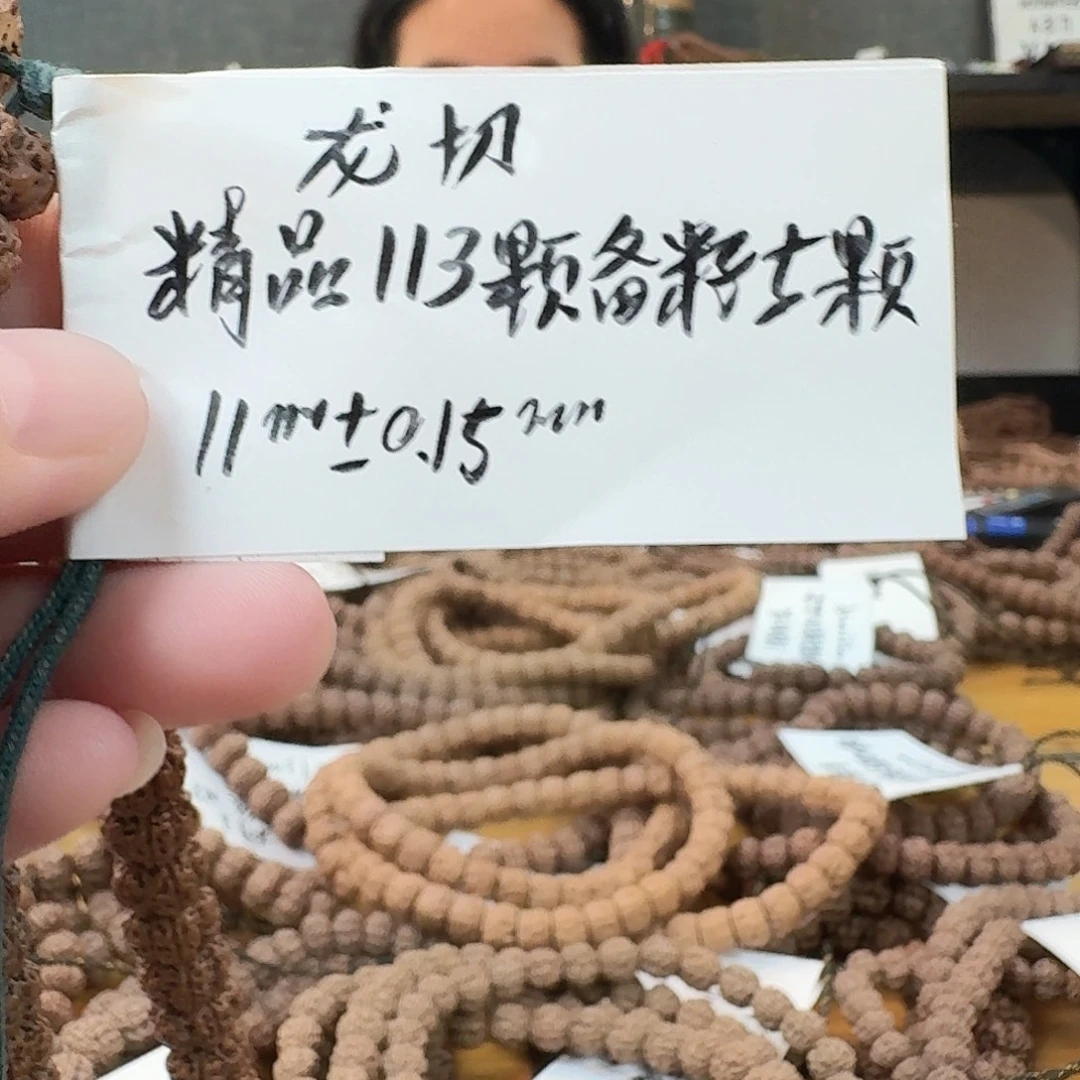 龙切
精品113颗备籽七颗
11mm±0.15mm